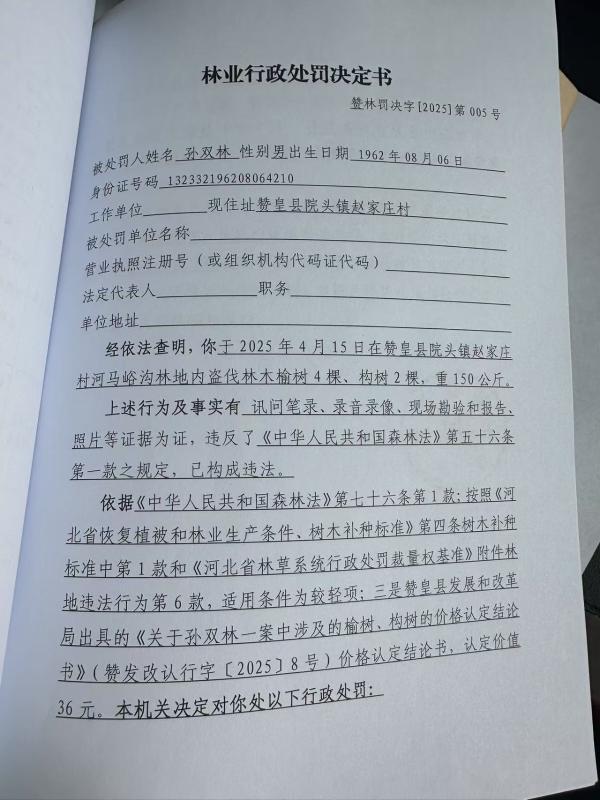 林业行政处罚决定书
赞林罚决字[2025]第 005 号
被处罚人姓名 孙双林 性别 男 出生日期 1962 年 08 月 06 日
身份证号码 132332196208064210
工作单位 现住址 赞皇县院头镇赵家庄村
被处罚单位名称
营业执照注册号（或组织机构代码证代码）
法定代表人 职务
单位地址
经依法查明，你于 2025 年 4 月 15 日在赞皇县院头镇赵家庄
村河马峪沟林地内盗伐林木榆树 4 棵、构树 2 棵，重 150 公斤。
上述行为及事实有 讯问笔录、录音录像、现场勘验和报告、
照片等证据为证，违反了《中华人民共和国森林法》第五十六条
第一款之规定，已构成违法。
依据《中华人民共和国森林法》第七十六条第 1 款；按照《河
北省恢复植被和林业生产条件、树木补种标准》第四条树木补种
标准中第 1 款和《河北省林草系统行政处罚裁量权基准》附件林
地违法行为第 6 款，适用条件为较轻项；三是赞皇县发展和改革
局出具的《关于孙双林一案中涉及的榆树、构树的价格认定结论
书》（赞发改认行字〔2025〕8 号）价格认定结论书，认定价值
36 元。本机关决定对你处以下行政处罚：